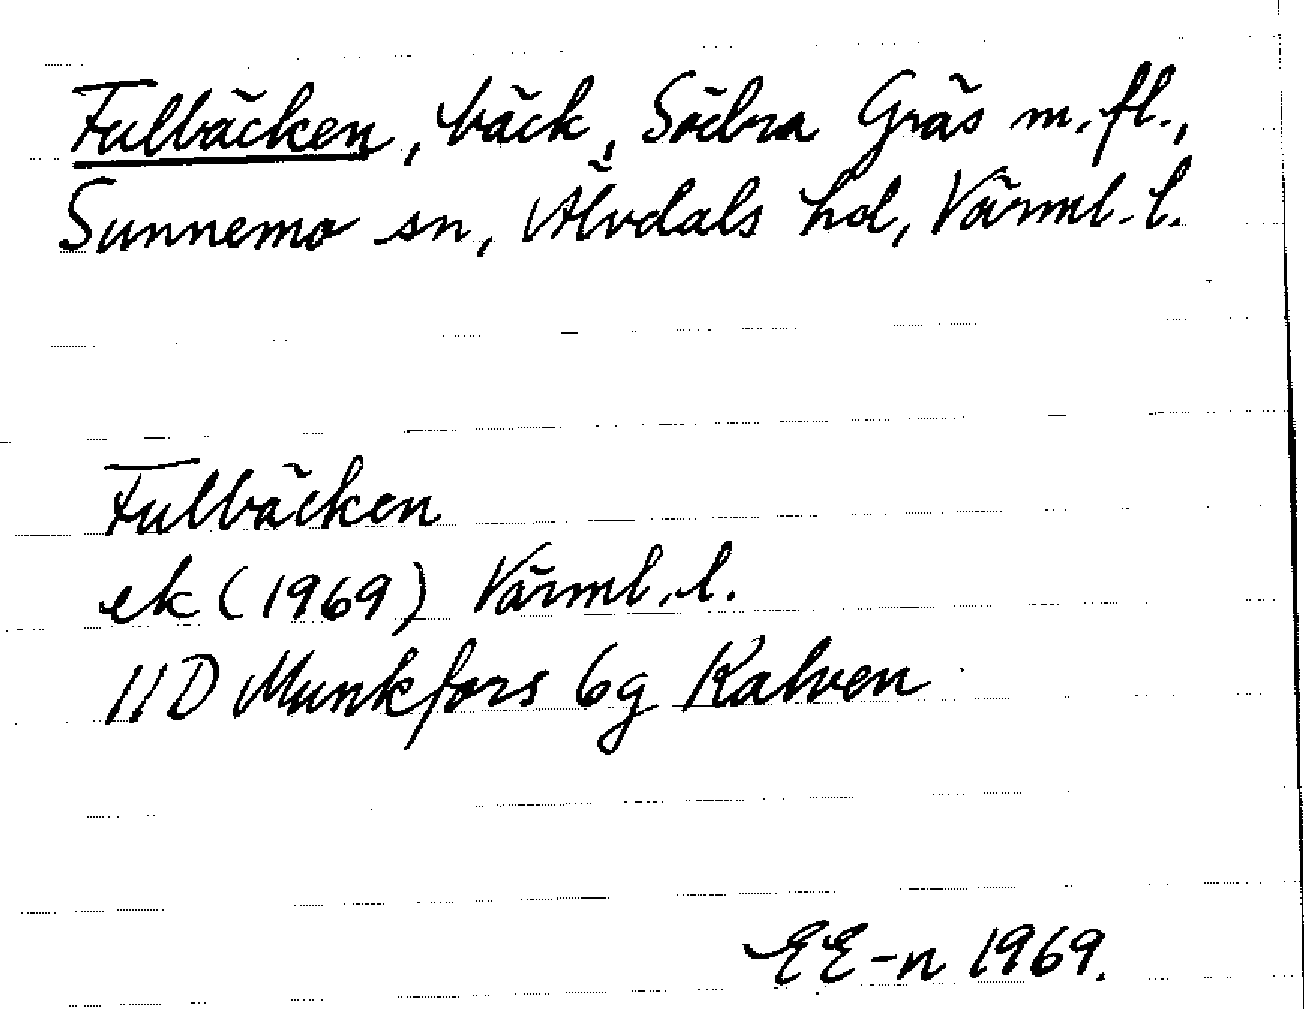 Fulbäcken, bäck, Södra Gräs m. fl.,
Sunnemo sn, Älvdals hd, Värml. l.
Fulbäcken
ek (1969) Värml. l.
11D Munkfors 6g Kalven
EE-n 1969.